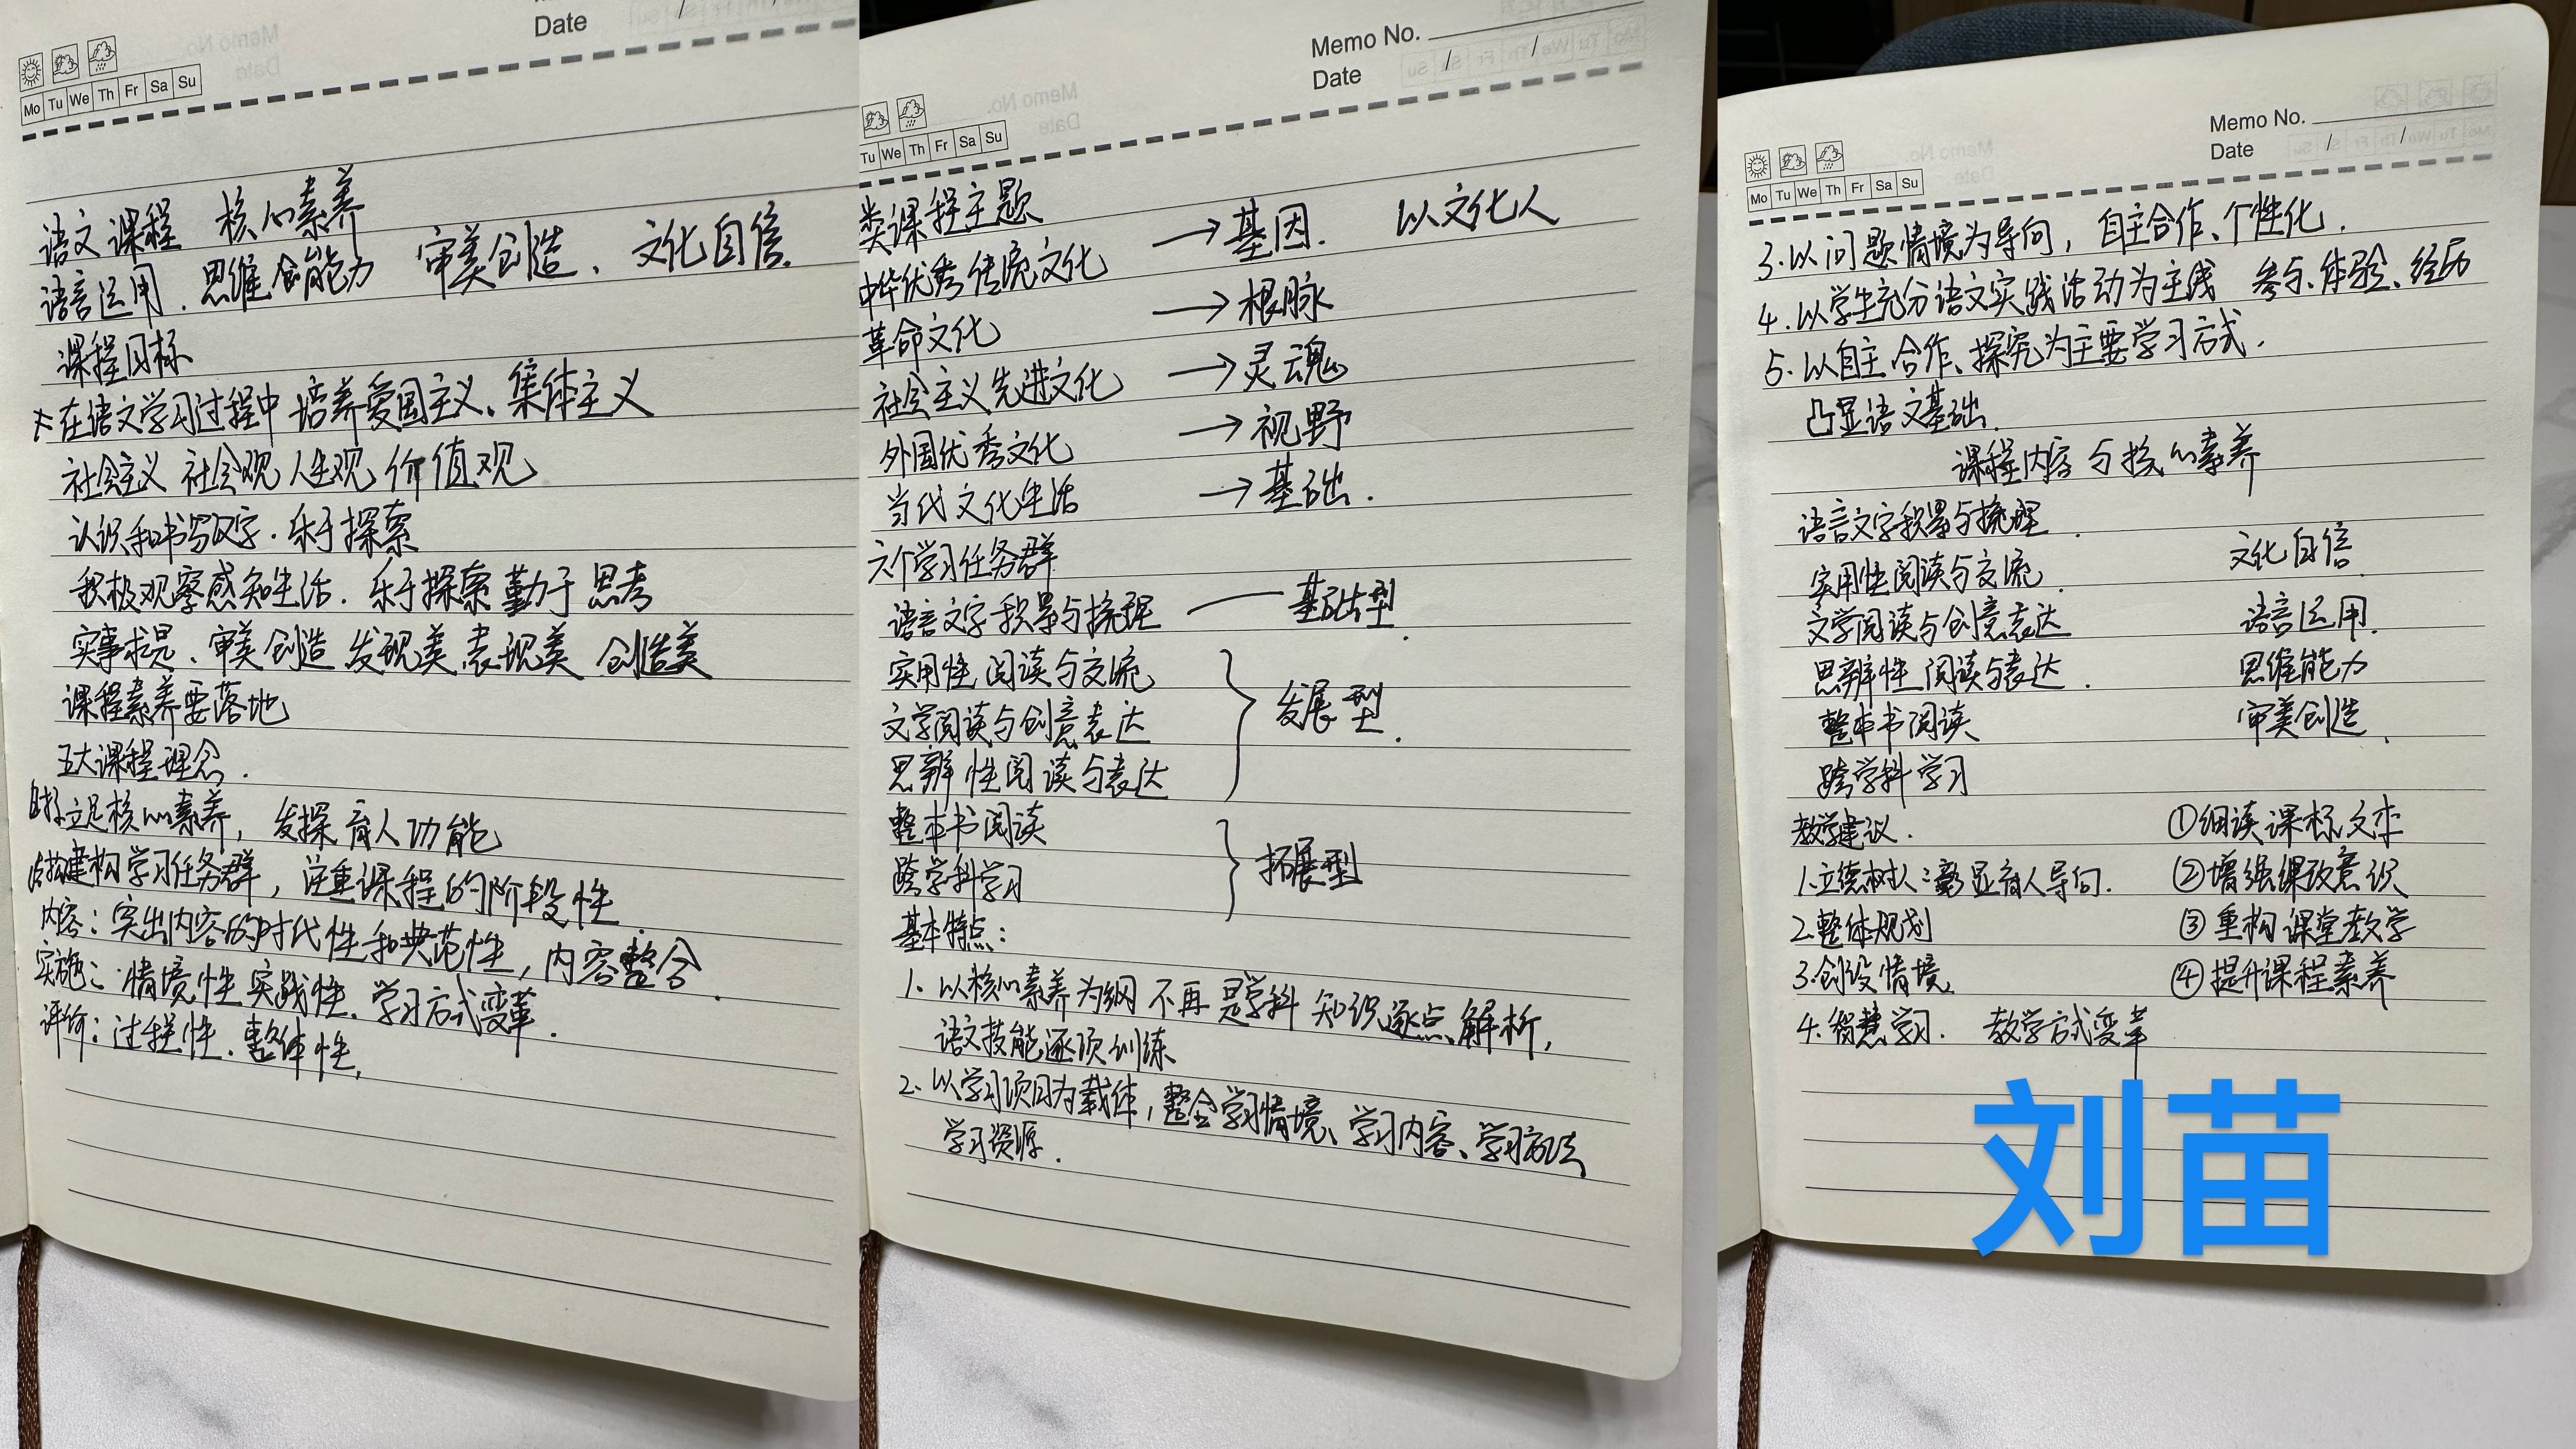 Date / 
Mo Tu We Th Fr Sa Su
语文课程 核心素养
语言运用、思维能力 审美创造、文化自信.
课程目标
在语文学习过程中 培养爱国主义、集体主义
社会主义 社会观 人生观 价值观
认识和书写汉字.乐于探索
积极观察感知生活.乐于探索 勤于思考
实事求是、审美创造 发现美、表现美 创造美
课程素养要落地
五大课程理念.
立足核心素养，发探育人功能
建构学习任务群，注重课程的阶段性.
内容：突出内容的时代性和典范性，内容整合.
实施：情境性 实践性、学习方式变革.
评价：过程性、整体性.
Memo No.
Date / /
Tu We Th Fr Sa Su
类课程主题
中华优秀传统文化 → 基因. 以文化人
革命文化 → 根脉
社会主义先进文化 → 灵魂
外国优秀文化 → 视野
当代文化生活 → 基础.
六个学习任务群
语言文字积累与梳理 — 基础型.
实用性阅读与交流
文学阅读与创意表达 发展型.
思辨性阅读与表达
整本书阅读
跨学科学习 拓展型
基本特点：
1. 以核心素养为纲 不再是学科知识逐点解析，
语文技能逐项训练
2. 以学习项目为载体，整合学习情境、学习内容、学习方法
学习资源.
Memo No.
Date / /
Mo Tu We Th Fr Sa Su
3.以问题情境为导向，自主合作、个性化.
4.以学生充分语文实践活动为主线 参与、体验、经历
5.以自主、合作、探究为主要学习方式.
凸显语文基础.
课程内容与核心素养
语言文字积累与梳理.
实用性阅读与交流. 文化自信
文学阅读与创意表达 语言运用.
思辨性阅读与表达. 思维能力
整本书阅读 审美创造.
跨学科学习
教学建议. ①细读课标文本
1.立德树人：彰显育人导向. ②增强课改意识
2.整体规划 ③重构课堂教学
3.创设情境 ④提升课程素养
4.智慧学习. 教学方式变革
刘苗